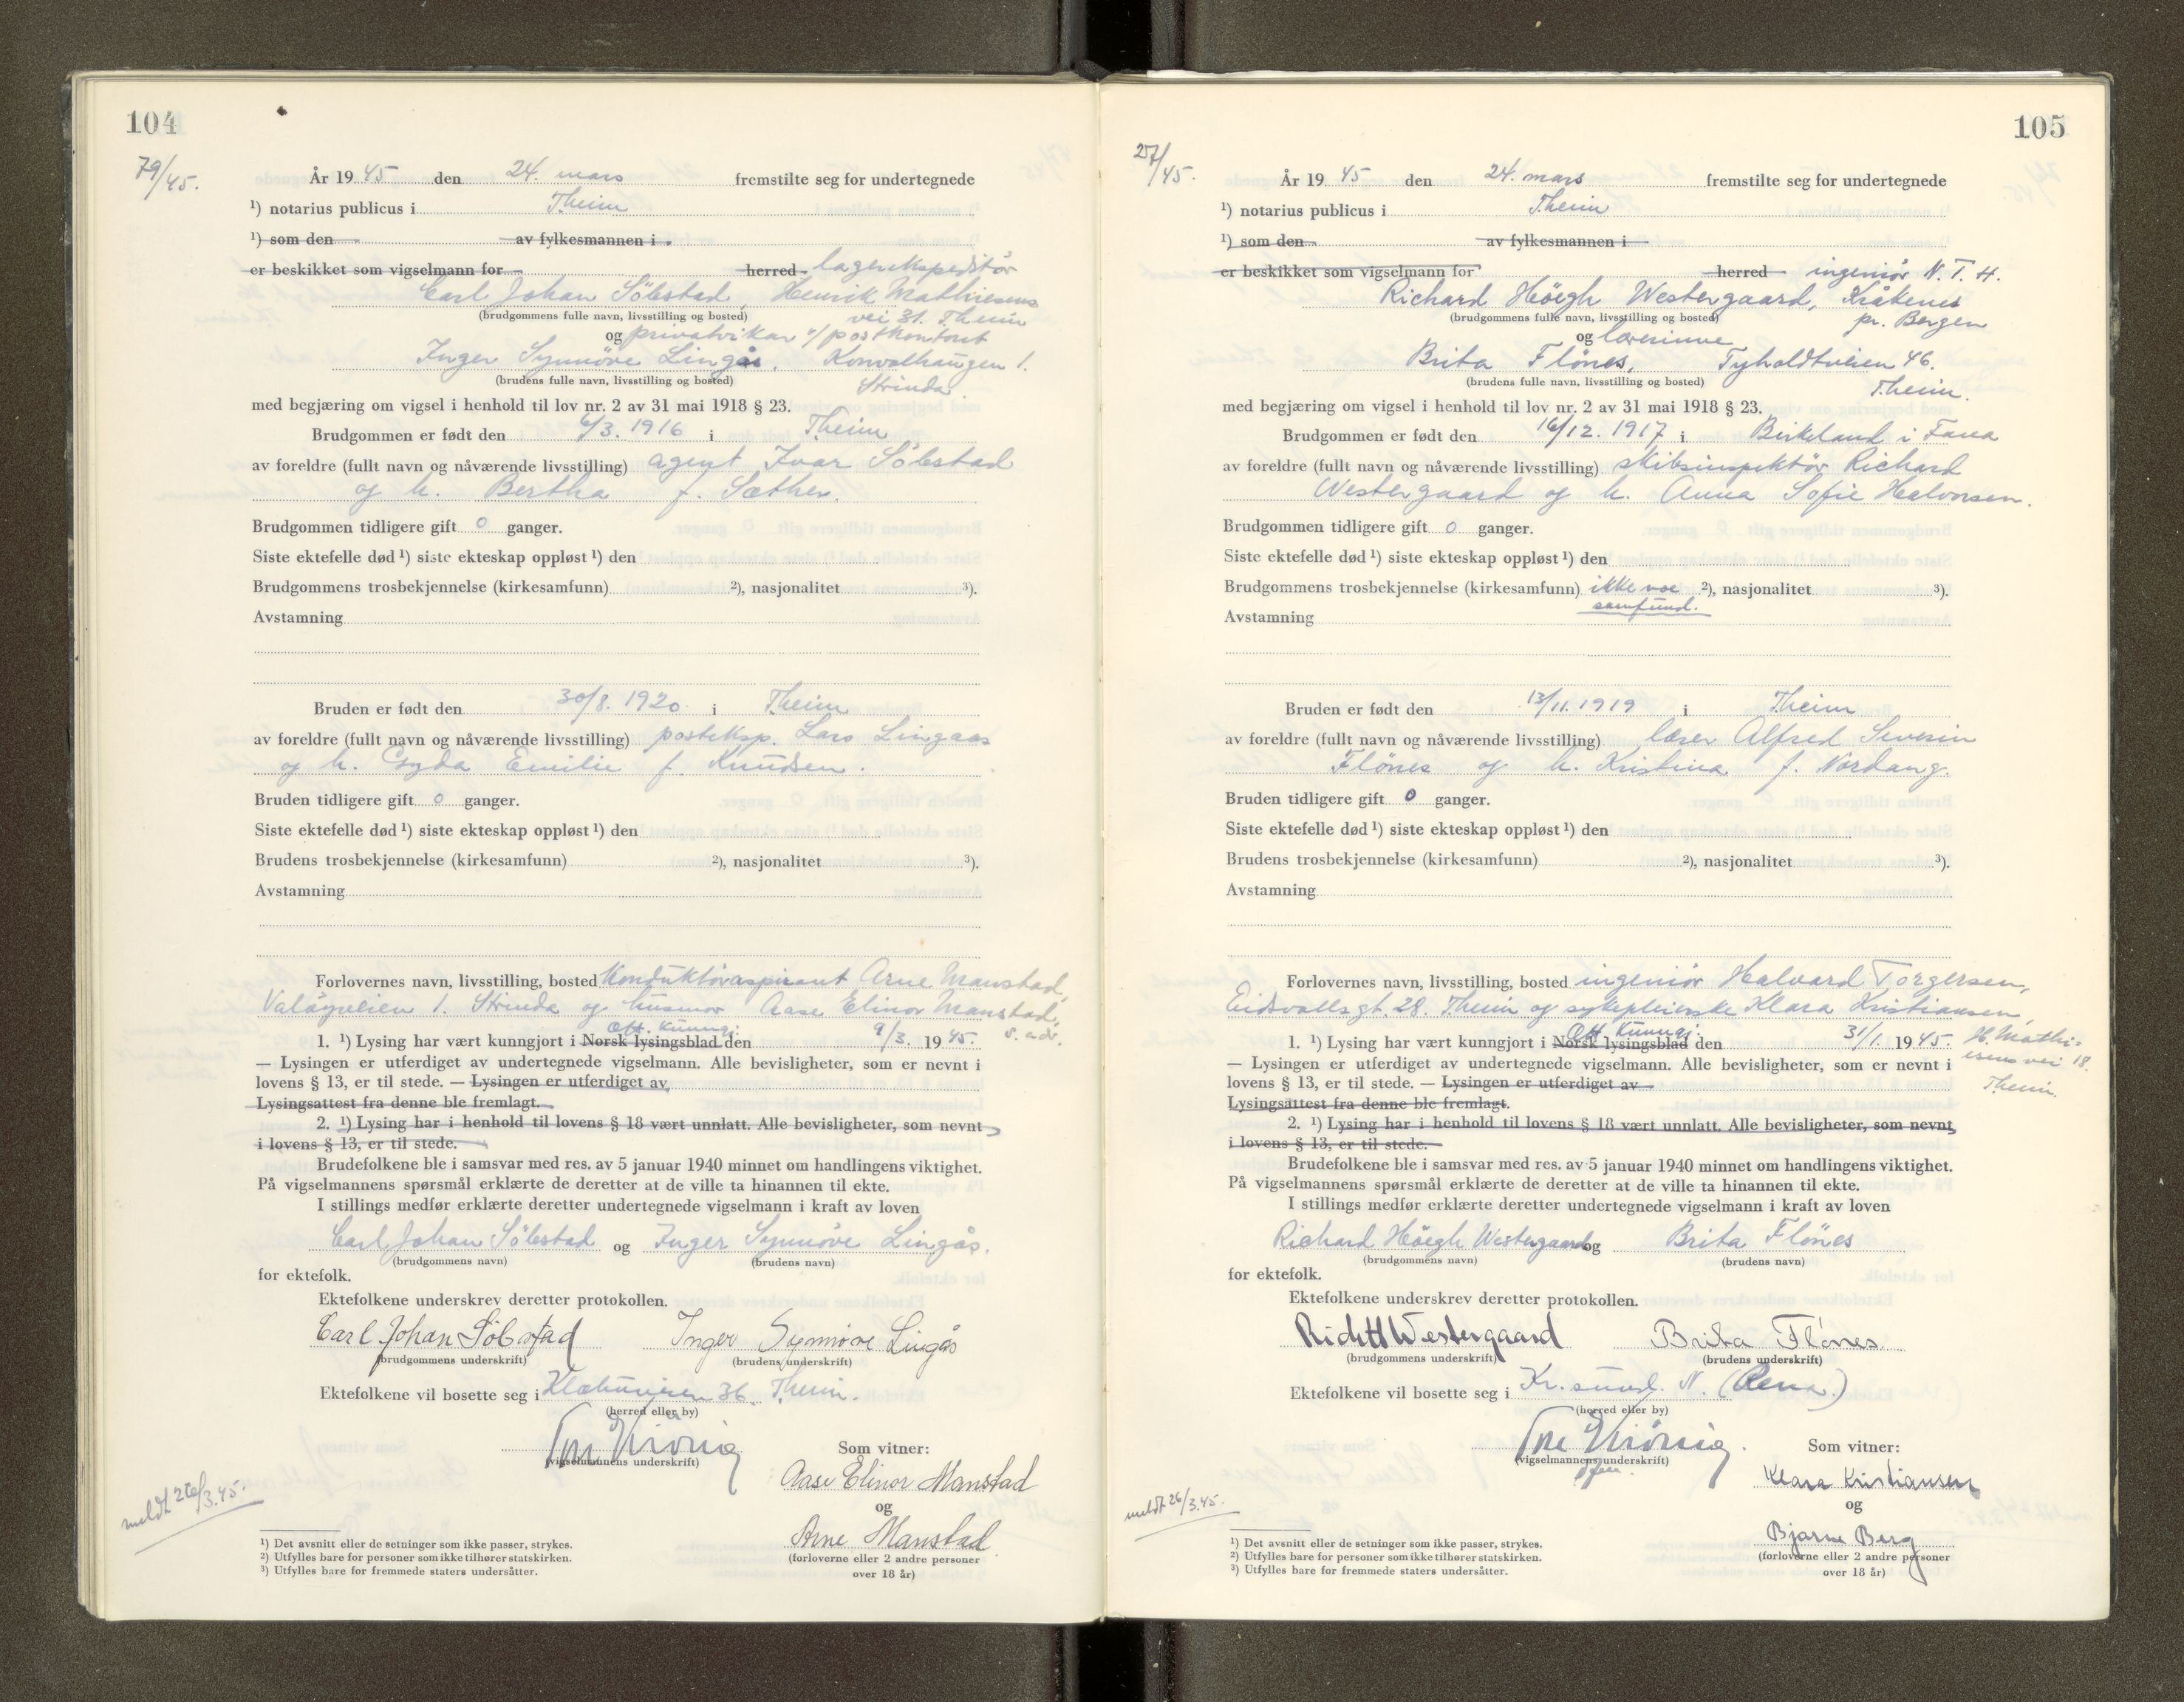 104
79/45.
År 1945 den 24. mars fremstilte seg for undertegnede
¹) notarius publicus i Theim
¹) som den av fylkesmannen i
er beskikket som vigselmann for herred lagerekspeditör
Carl Johan Sölestad, Henrik Mathiesens
(brudgommens fulle navn, livsstilling og bosted) vei 31. Theim
og privatvikar v/postkontoret
Inger Synnöve Lingås, Konvalhaugen 1.
(brudens fulle navn, livsstilling og bosted) Strinda
med begjæring om vigsel i henhold til lov nr. 2 av 31 mai 1918 § 23.
Brudgommen er født den 6/3. 1916 i Theim
av foreldre (fullt navn og nåværende livsstilling) agent Ivar Sölestad
og h. Bertha f. Sæther.
Brudgommen tidligere gift 0 ganger.
Siste ektefelle død ¹) siste ekteskap oppløst ¹) den
Brudgommens trosbekjennelse (kirkesamfunn) ²), nasjonalitet ³).
Avstamning
Bruden er født den 30/8. 1920 i Theim
av foreldre (fullt navn og nåværende livsstilling) posteksp. Lars Lingaas
og h. Gyda Emilie f. Knudsen.
Bruden tidligere gift 0 ganger.
Siste ektefelle død ¹) siste ekteskap oppløst ¹) den
Brudens trosbekjennelse (kirkesamfunn) ²), nasjonalitet ³).
Avstamning
Forlovernes navn, livsstilling, bosted Konduktöraspirant Arne Manstad,
Valöyveien 1. Strinda og husmor Aase Elinor Manstad,
s. adr.
Off. kunngj.
1. ¹) Lysing har vært kunngjort i Norsk lysingsblad den 9/3. 1945.
— Lysingen er utferdiget av undertegnede vigselmann. Alle bevisligheter, som er nevnt i
lovens § 13, er til stede. — Lysingen er utferdiget av
Lysingsattest fra denne ble fremlagt.
2. ¹) Lysing har i henhold til lovens § 18 vært unnlatt. Alle bevisligheter, som nevnt
i lovens § 13, er til stede.
Brudefolkene ble i samsvar med res. av 5 januar 1940 minnet om handlingens viktighet.
På vigselmannens spørsmål erklærte de deretter at de ville ta hinannen til ekte.
I stillings medfør erklærte deretter undertegnede vigselmann i kraft av loven
Carl Johan Sölestad og Inger Synnöve Lingås.
(brudgommens navn) (brudens navn)
for ektefolk.
Ektefolkene underskrev deretter protokollen.
Carl Johan Sölestad Inger Synnöve Lingås
(brudgommens underskrift) (brudens underskrift)
Ektefolkene vil bosette seg i Klæbuveien 36. Theim.
(herred eller by)
(vigselmannens underskrift)
Som vitner:
Aase Elinor Manstad
og
Arne Manstad
(forloverne eller 2 andre personer
over 18 år)
meldt 26/3.45.
¹) Det avsnitt eller de setninger som ikke passer, strykes.
²) Utfylles bare for personer som ikke tilhører statskirken.
³) Utfylles bare for fremmede staters undersåtter.
105
27/45.
År 1945 den 24. mars fremstilte seg for undertegnede
¹) notarius publicus i Theim
¹) som den av fylkesmannen i
er beskikket som vigselmann for herred ingeniör N.T.H.
Richard Höegh Westergaard, Kråkenes
(brudgommens fulle navn, livsstilling og bosted) pr. Bergen
og lærerinne
Brita Flönes, Tyholdtveien 46.
(brudens fulle navn, livsstilling og bosted) Theim.
med begjæring om vigsel i henhold til lov nr. 2 av 31 mai 1918 § 23.
Brudgommen er født den 16/12. 1917 i Birkeland i Fana
av foreldre (fullt navn og nåværende livsstilling) skibsinspektör Richard
Westergaard og h. Anna Sofie Halvorsen.
Brudgommen tidligere gift 0 ganger.
Siste ektefelle død ¹) siste ekteskap oppløst ¹) den
Brudgommens trosbekjennelse (kirkesamfunn) ikke noe ²), nasjonalitet ³).
samfund.
Avstamning
Bruden er født den 13/11. 1919 i Theim
av foreldre (fullt navn og nåværende livsstilling) lærer Alfred Severin
Flönes og h. Kristina f. Nordang.
Bruden tidligere gift 0 ganger.
Siste ektefelle død ¹) siste ekteskap oppløst ¹) den
Brudens trosbekjennelse (kirkesamfunn) ²), nasjonalitet ³).
Avstamning
Forlovernes navn, livsstilling, bosted ingeniör Halvard Torgersen,
Eidsvollsgt. 28. Theim og sykepleierske Klara Kristiansen,
H. Mathi=
esens vei 18.
Theim.
Off. kunngj.
1. ¹) Lysing har vært kunngjort i Norsk lysingsblad den 31/1. 1945.
— Lysingen er utferdiget av undertegnede vigselmann. Alle bevisligheter, som er nevnt i
lovens § 13, er til stede. — Lysingen er utferdiget av
Lysingsattest fra denne ble fremlagt.
2. ¹) Lysing har i henhold til lovens § 18 vært unnlatt. Alle bevisligheter, som nevnt
i lovens § 13, er til stede.
Brudefolkene ble i samsvar med res. av 5 januar 1940 minnet om handlingens viktighet.
På vigselmannens spørsmål erklærte de deretter at de ville ta hinannen til ekte.
I stillings medfør erklærte deretter undertegnede vigselmann i kraft av loven
Richard Höegh Westergaard og Brita Flönes
(brudgommens navn) (brudens navn)
for ektefolk.
Ektefolkene underskrev deretter protokollen.
Rich H Westergaard Brita Flönes
(brudgommens underskrift) (brudens underskrift)
Ektefolkene vil bosette seg i Kr.sund. N. (Rena.)
(herred eller by)
(vigselmannens underskrift)
Som vitner:
Klara Kristiansen
og
Bjarne Berg
(forloverne eller 2 andre personer
over 18 år)
meldt 26/3.45.
¹) Det avsnitt eller de setninger som ikke passer, strykes.
²) Utfylles bare for personer som ikke tilhører statskirken.
³) Utfylles bare for fremmede staters undersåtter.